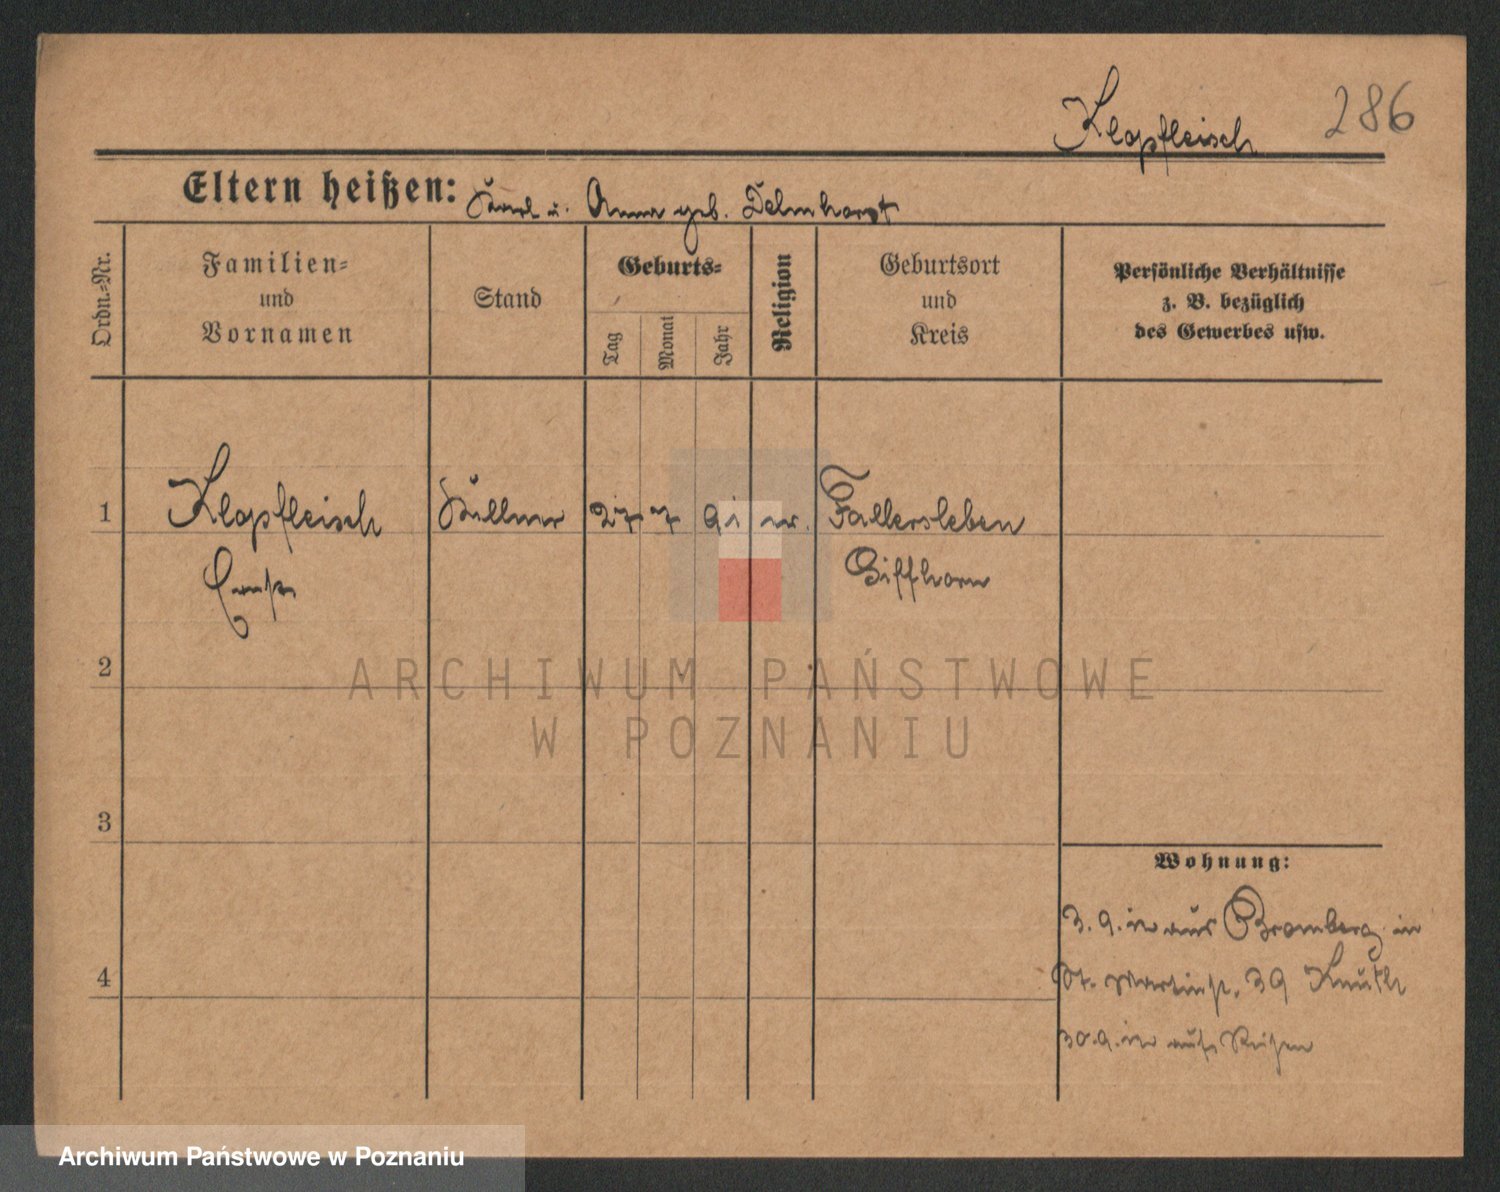 Klopfleisch
286
Eltern heißen: Karl u. Anna geb. Delmhorst
Ordn.-Nr.
Familien-
und
Vornamen
Stand
Geburts-
Tag
Monat
Jahr
Religion
Geburtsort
und
Kreis
Persönliche Verhältnisse
z. B. bezüglich
des Gewerbes usw.
1
Klopfleisch
Kellner
27
7
91
ev.
Fallersleben
Ernst
Giffhorn
2
3
4
Wohnung:
3. 9. aus Bromberg in
St. Martinstr. 39 Knuth
30. 9. auf Reisen
ARCHIWUM PAŃSTWOWE
W POZNANIU
Archiwum Państwowe w Poznaniu